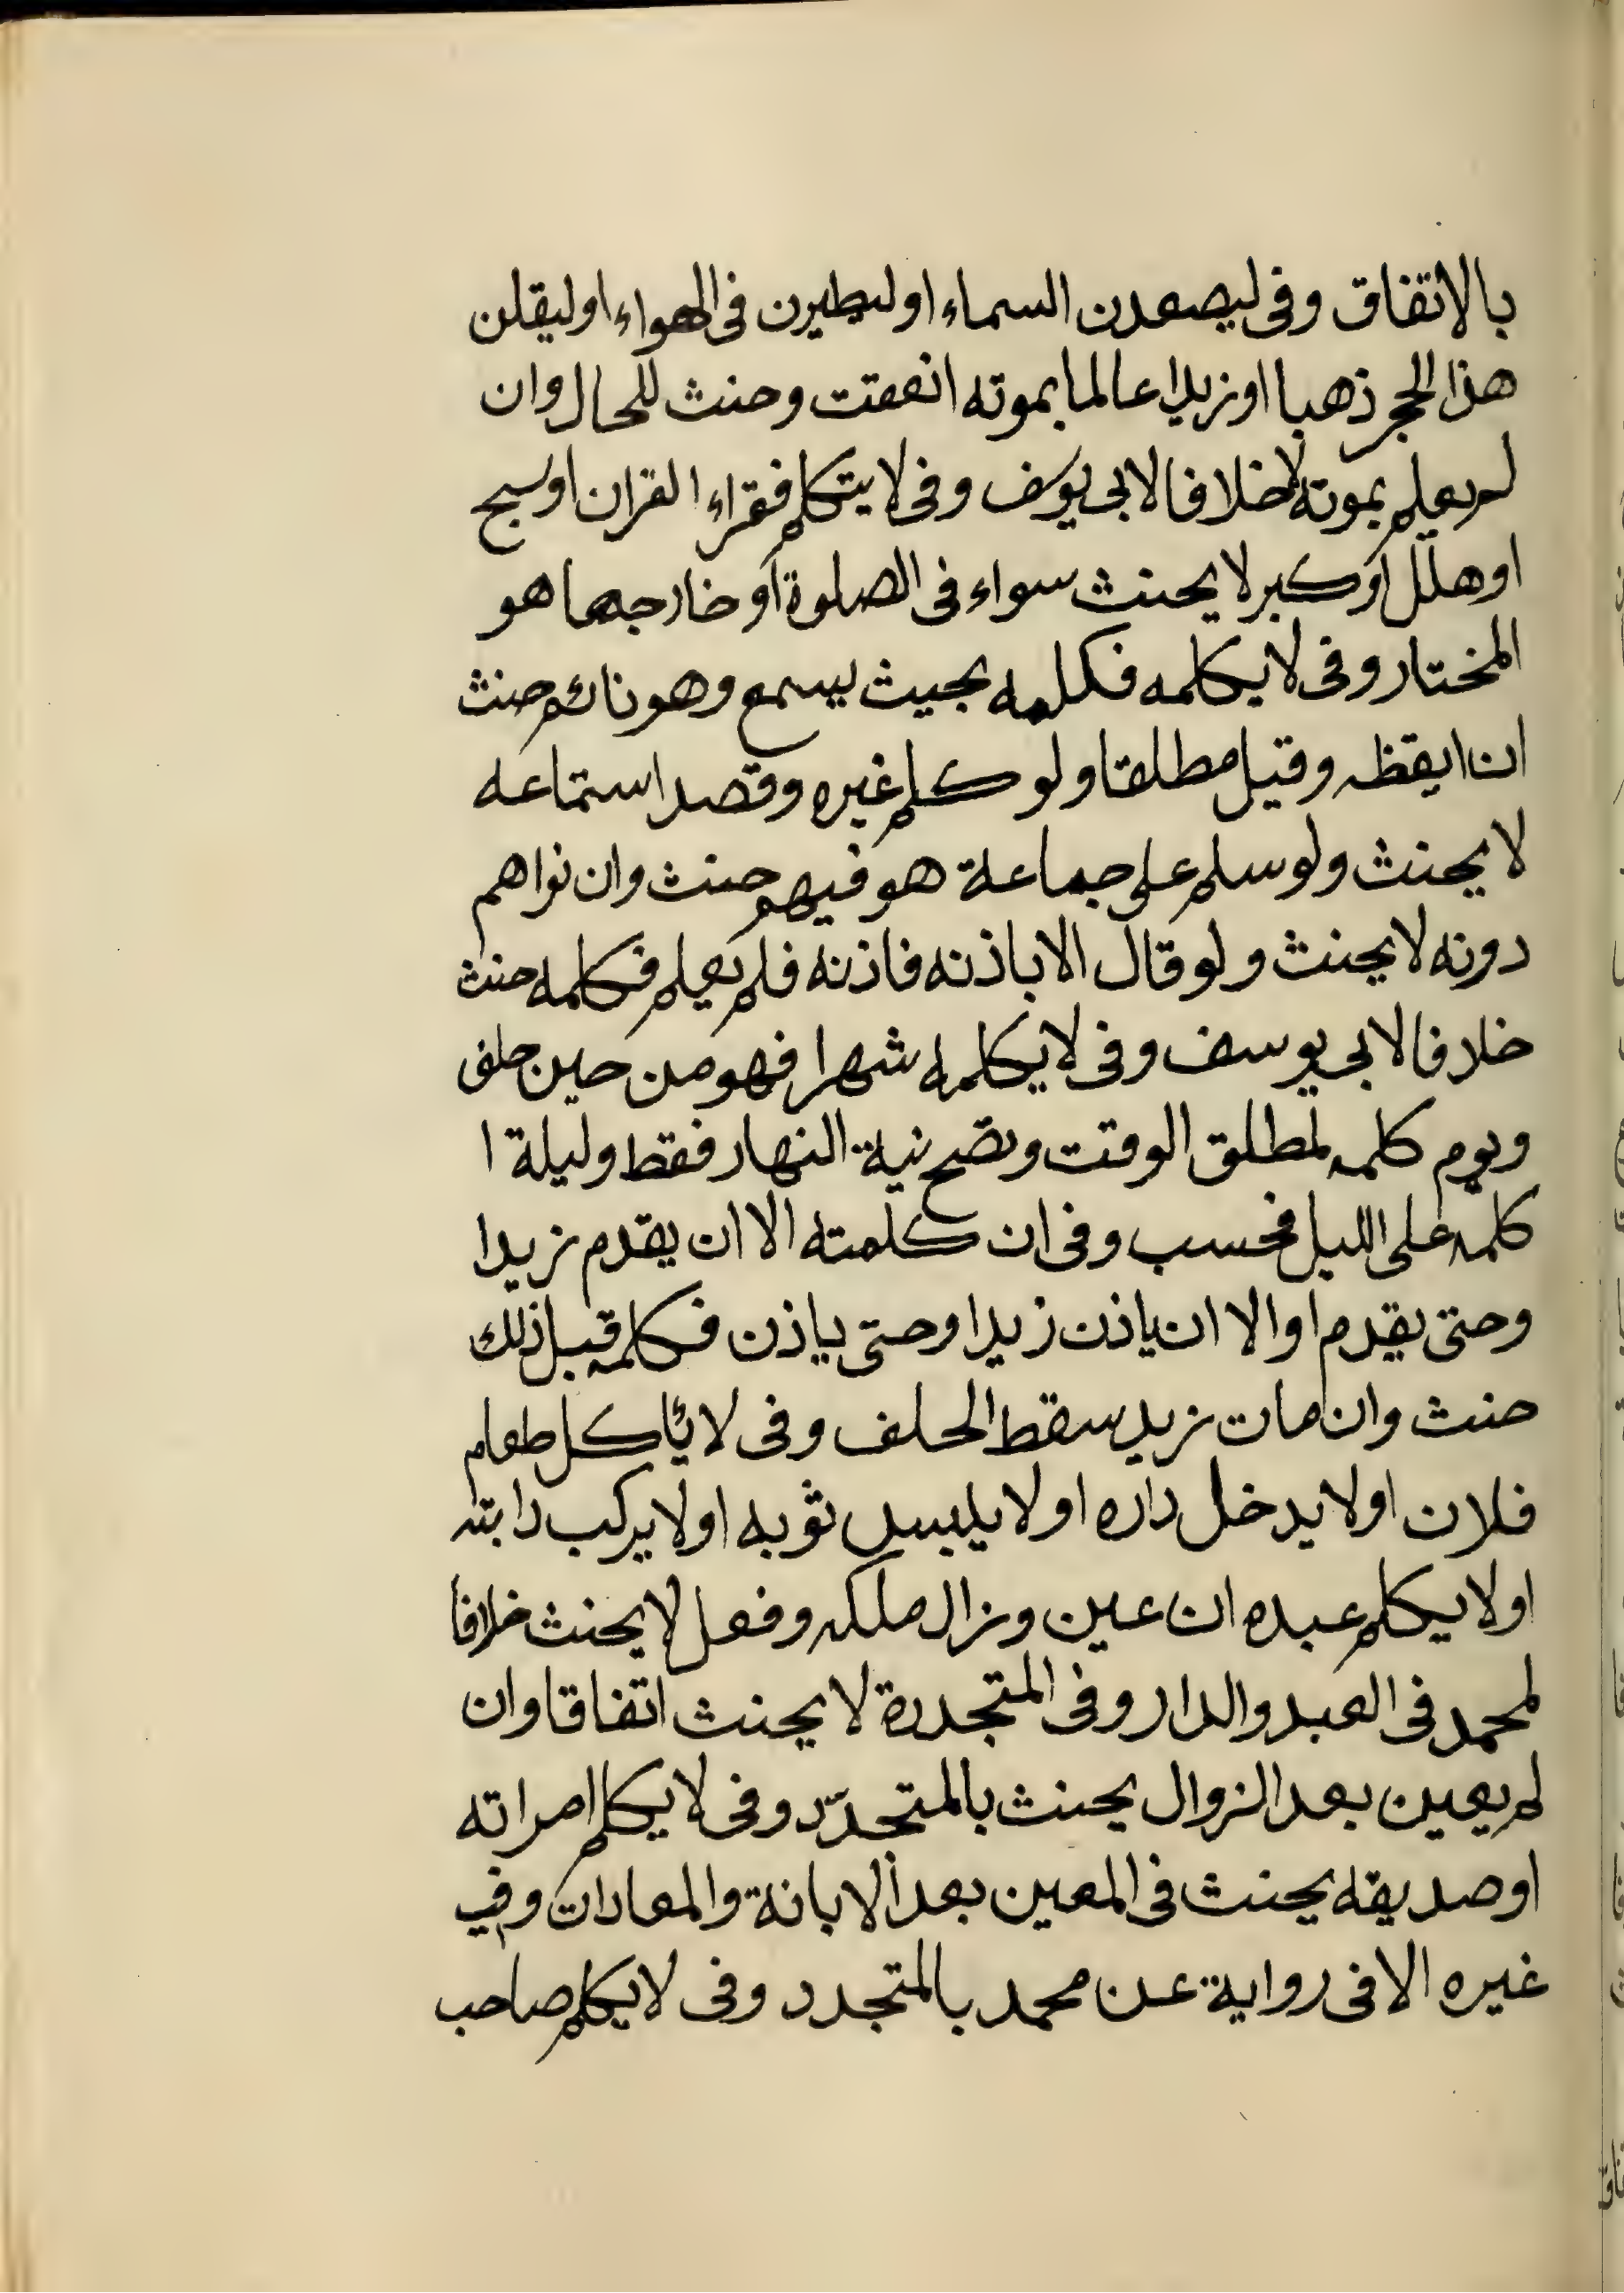 بالاتفاق وفى ليصعدن السماء او ليطيرن فى الهواء او ليقلن
هذا الحجر ذهبا او زيدا عالما بموته انعقتت وحنث للحال وان
لم يعلم بموته لا خلافا لابى يوسف وفى لا يتكلم فقراء القران او سبح
او هلل او كبر لا يحنث سواء فى الصلوة او خارجها هو
المختار وفى لا يكلمه فكلمه بحيث يسمع وهو نائم حنث
ان ايقظه وقيل مطلقا ولو كلم غيره وقصد استماعه
لا يحنث ولو سلم على جماعة هو فيهم حنث وان نواهم
دونه لا يحنث ولو قال الا باذنه فاذنه فلم يعلم فكلمه حنث
خلافا لابى يوسف وفى لا يكلمه شهرا فهو من حين حلف
ويوم كلمه لمطلق الوقت وتصح نية النهار فقط وليلة ا
كلمه على الليل فحسب وفى ان كلمته الا ان يقدم زيدا
وحتى يقدم او الا ان ياذن زيدا وحتى ياذن فكلمه قبل ذلك
حنث وان مات زيد سقط الحلف وفى لا ئاكل طعام
فلان او لا يدخل داره او لا يلبس ثوبه او لا يركب دابته
او لا يكلم عبده ان عين وزال ملكه وفعل لا يحنث خلافا
لمحمد فى العبد والدار وفى المتجددة لا يحنث اتفاقا وان
لم يعين بعد الزوال يحنث بالمتجدّد وفى لا يكلم امراته
او صديقه يحنث فى المعين بعد الابانة والمعادات وفي
غيره الا فى رواية عن محمد بالمتجدد وفى لا يكلم صاحب